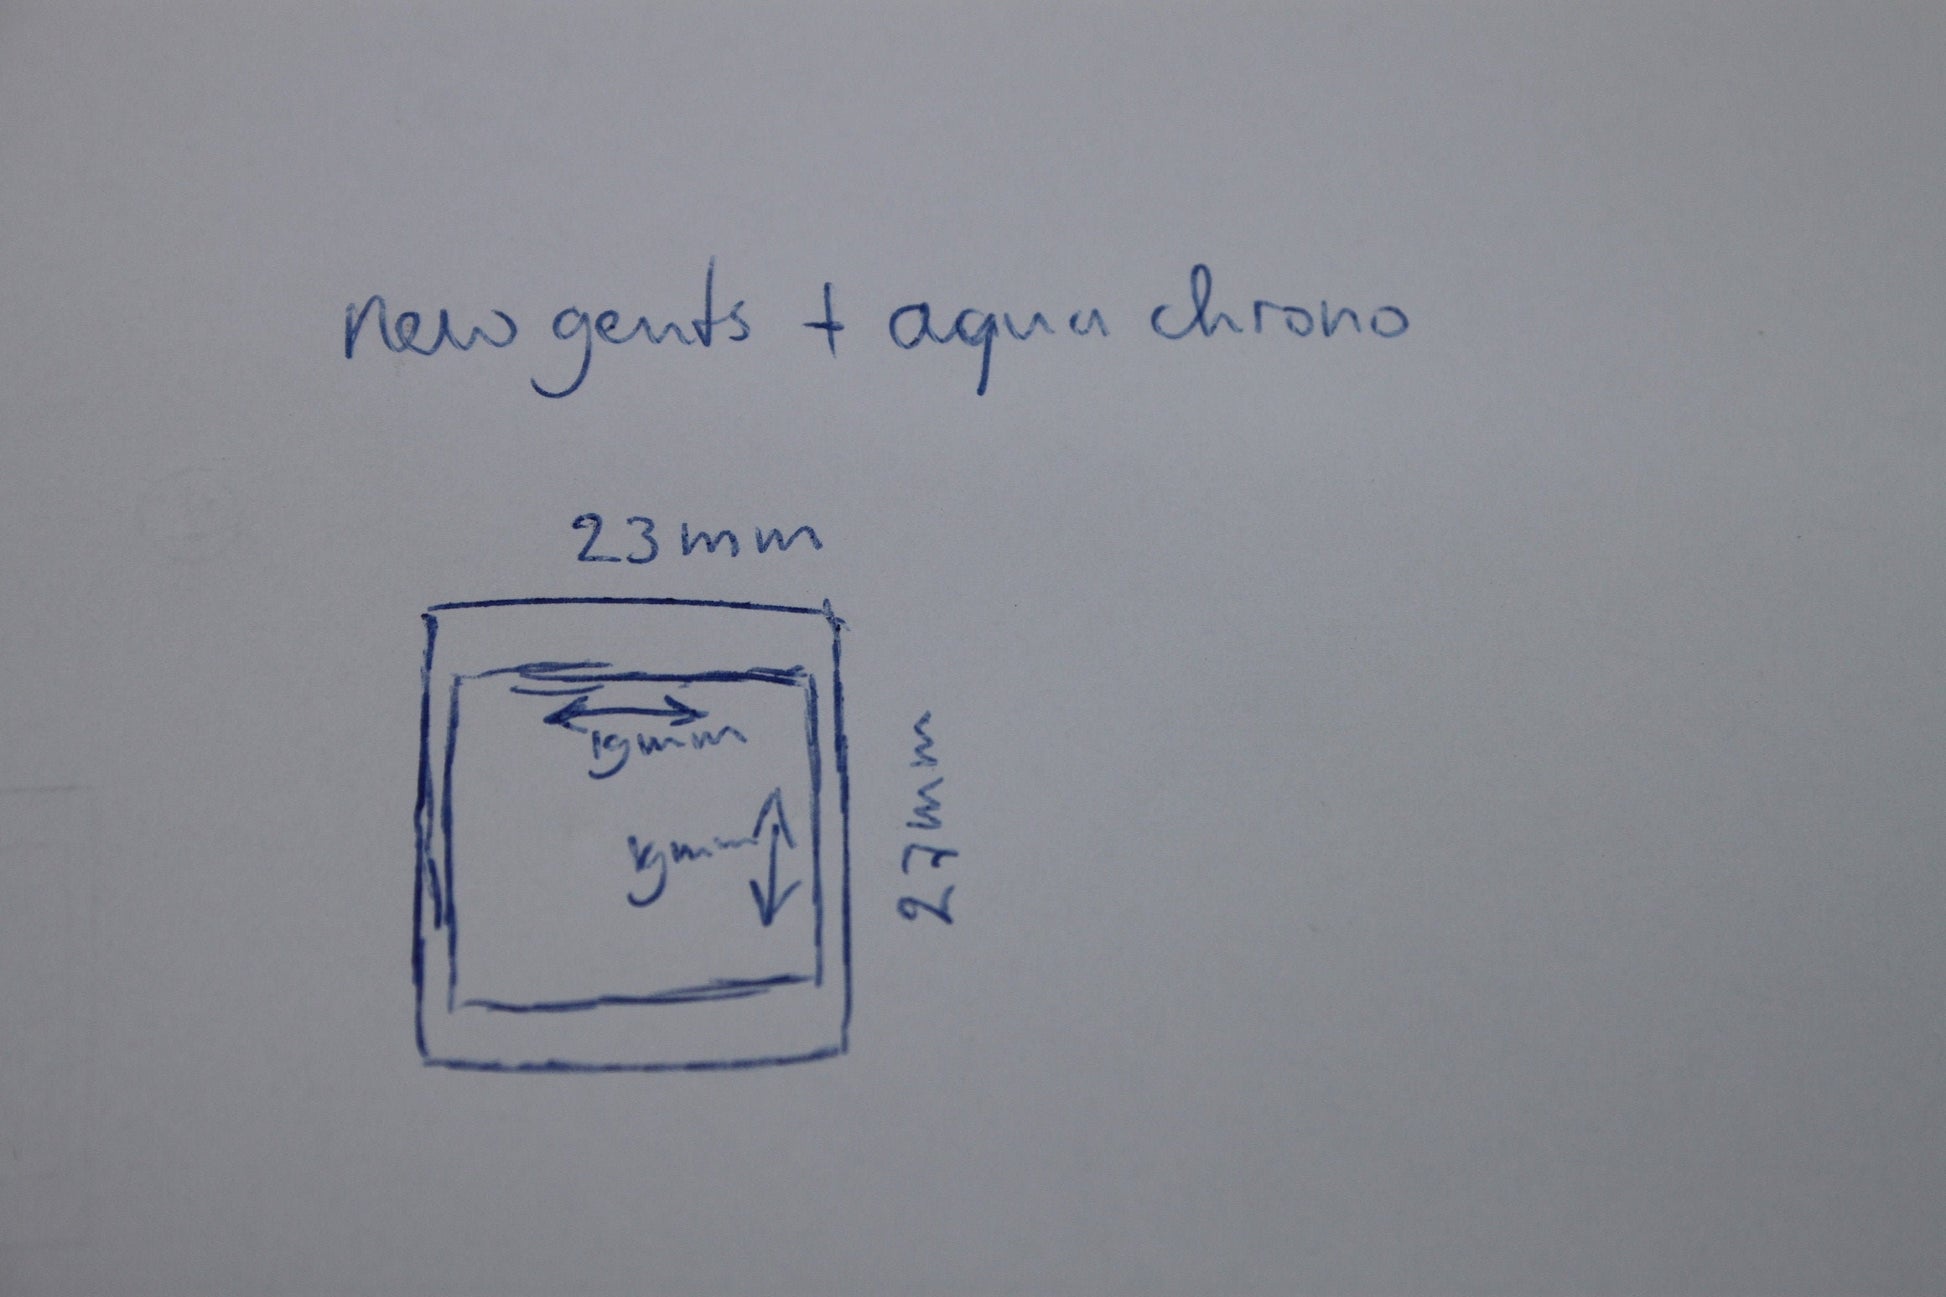 new gents + aqua chrono
23mm
19mm
19mm
27mm